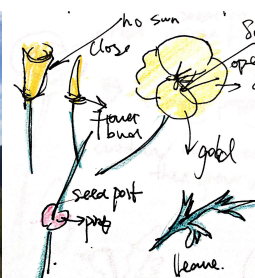 no sun
close
open
Flower
bud
gold
seed post
pink
leave.